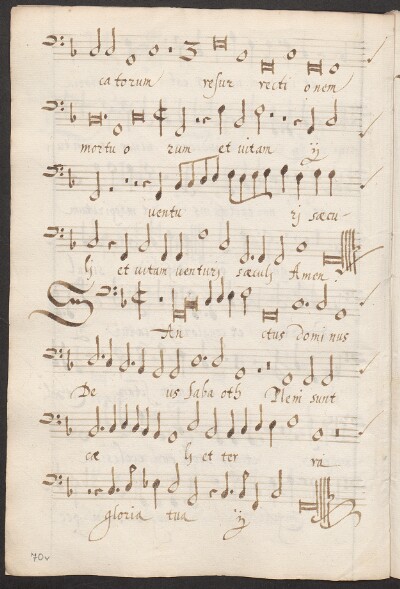 catorum resur recti onem
mortu o rum et vitam ij
ventu rj sæcu-
lj et vitam venturj sæculj Amen
San-ctus dominus
De us Sabaoth Plenj sunt
cæ lj et ter ra
gloria tua ij
70v